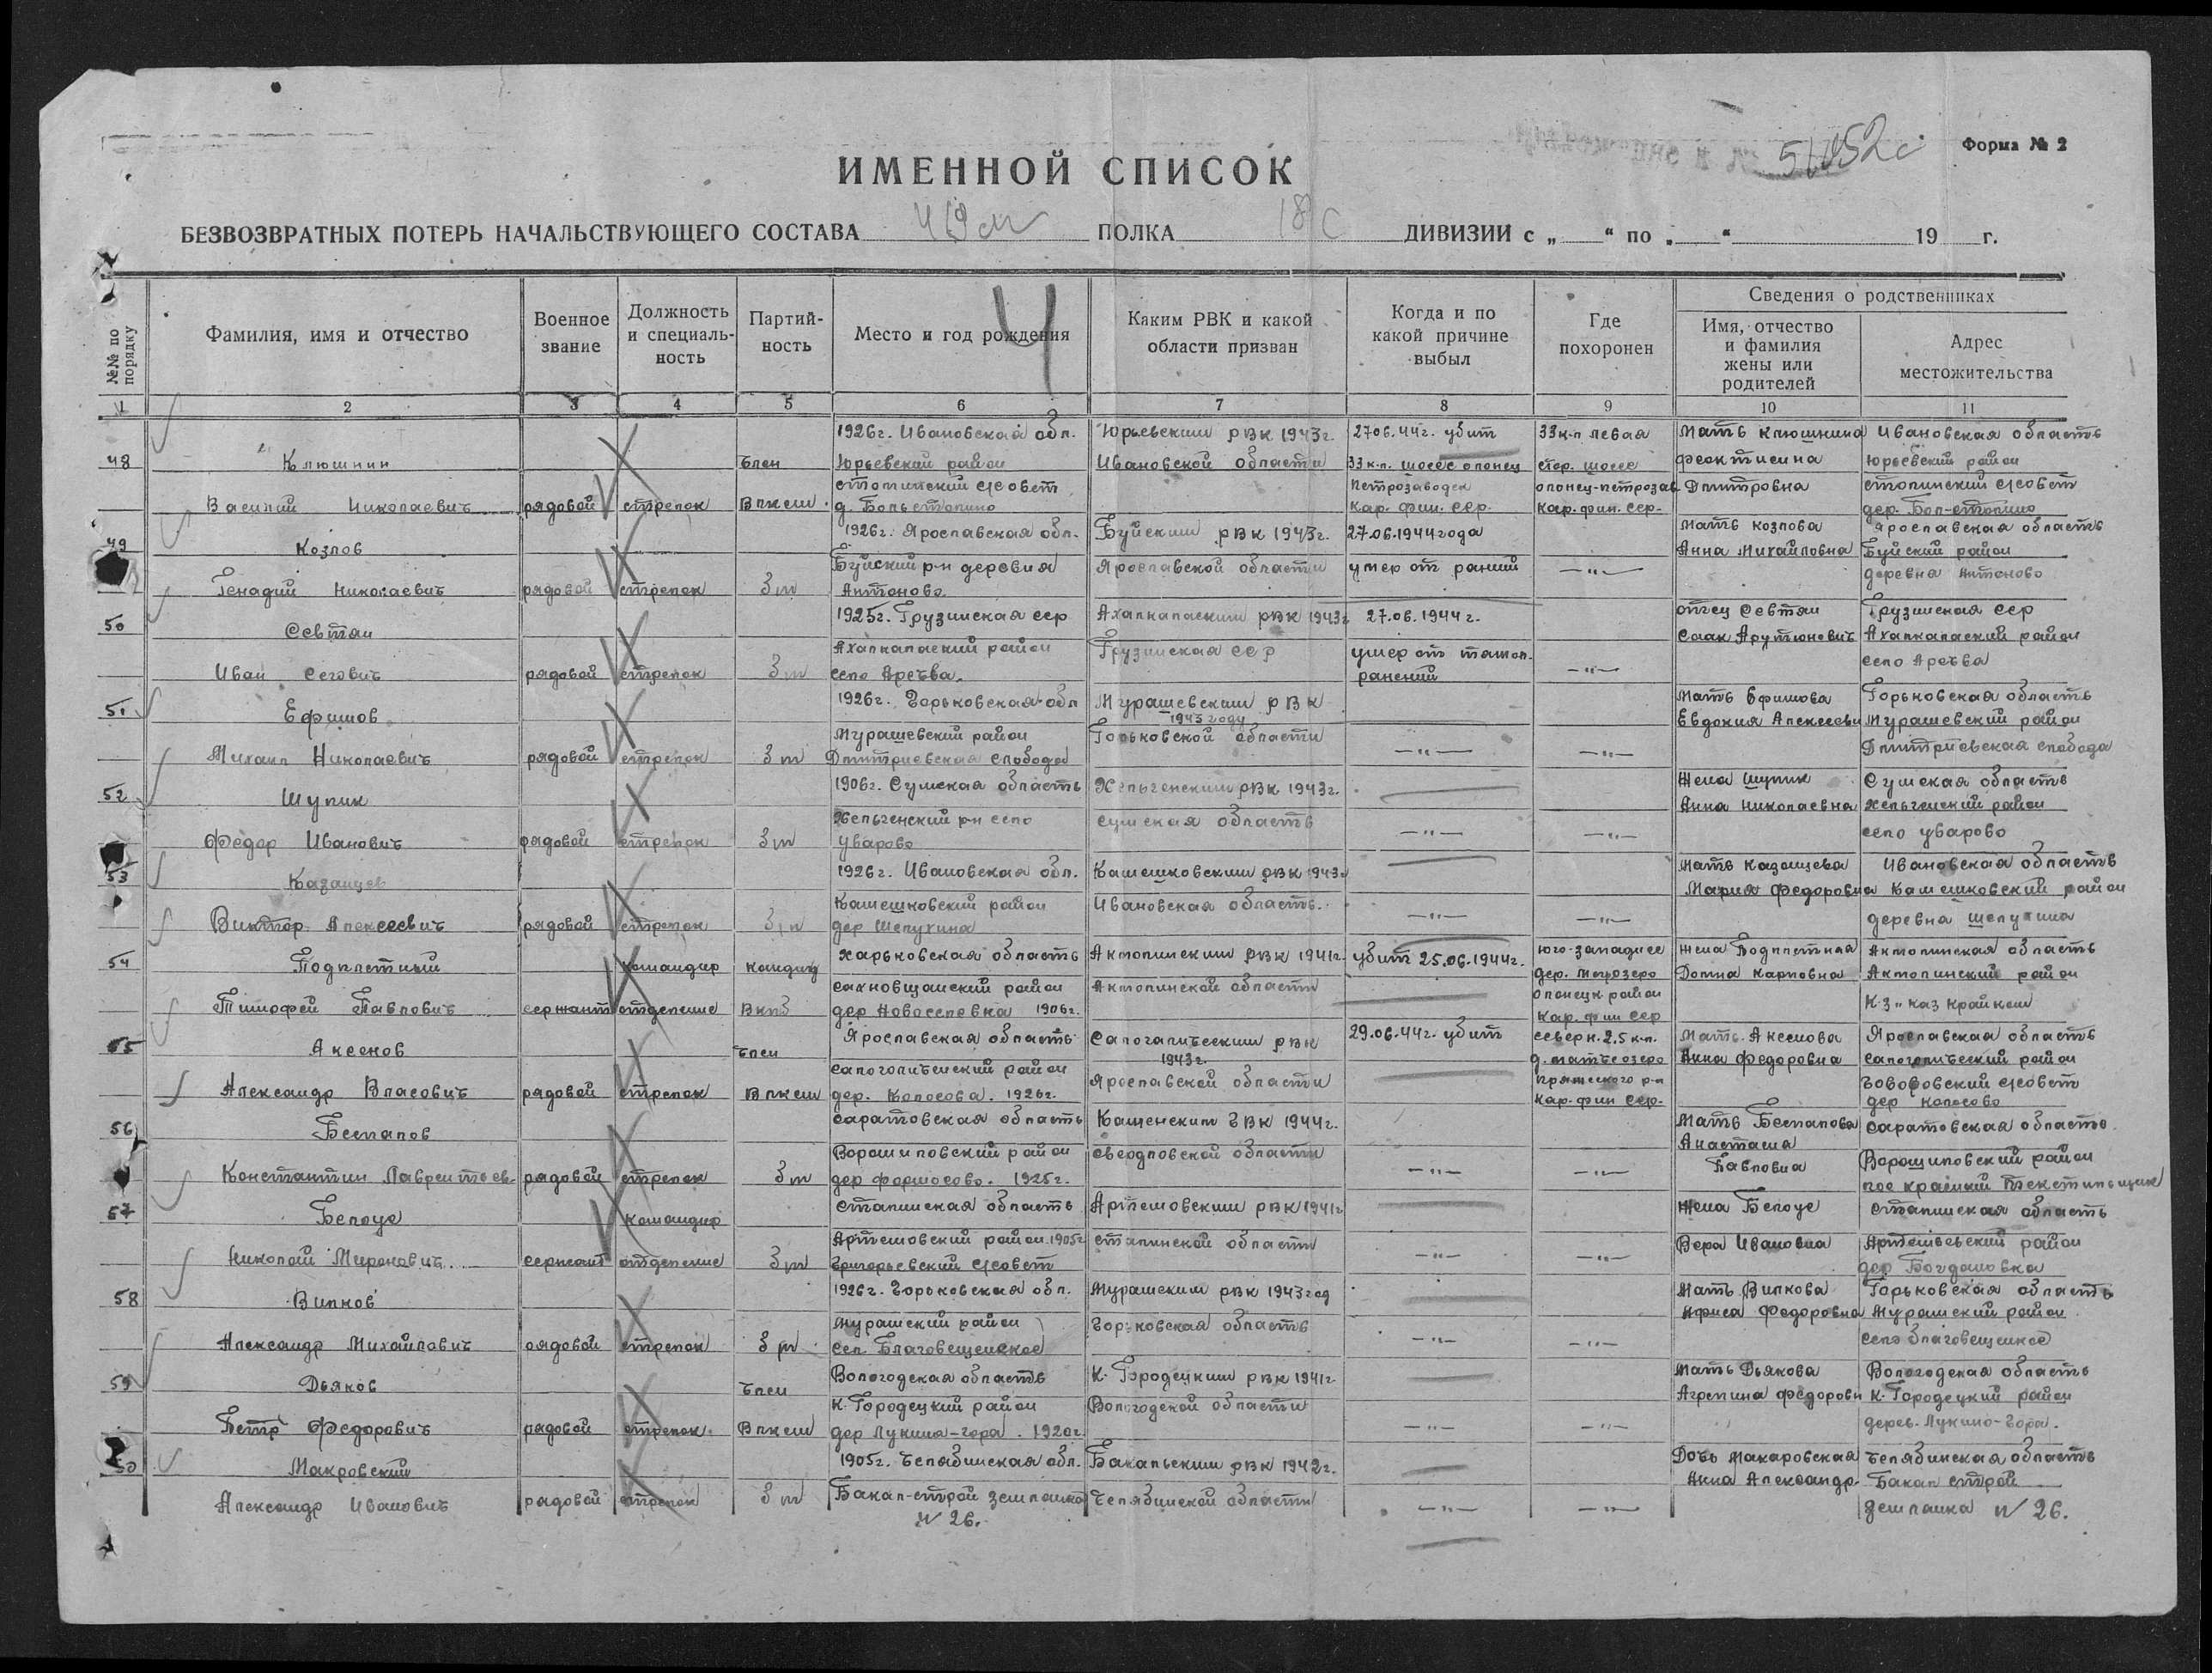 51052с
Форма № 2
ИМЕННОЙ СПИСОК
БЕЗВОЗВРАТНЫХ ПОТЕРЬ НАЧАЛЬСТВУЮЩЕГО СОСТАВА ПОЛКА ДИВИЗИИ с „ “ по „ “ 19 г.
№№ по порядку
Фамилия, имя и отчество
Военное звание
Должность и специальность
Партийность
Место и год рождения
Каким РВК и какой области призван
Когда и по какой причине выбыл
Где похоронен
Сведения о родственниках
Имя, отчество и фамилия жены или родителей
Адрес местожительства
1 2 3 4 5 6 7 8 9 10 11
1926г. Ивановская обл. Юрьевским РВК 1943г. 27.06.44г. убит 33 к-л левая Мать Клюшнина Ивановская область
48 Клюшнин Член Юрьевский район Ивановской области 33 к-л. шоссе олонец стор. шоссе Феоктисина Юрьевский район
Василий Николаевич рядовой стрелок Влксм стопинский с/совет д. Больстопино Петрозаводск Кар. фин. сср. олонец-петрозав Кар. фин. сср. Дмитровна стопинский с/совет дер. Бол-стопино
49 Козлов 1926г. Ярославская обл. Буйским РВК 1943г. 27.06.1944 года Мать Козлова Анна Михайловна Ярославская область Буйский район
Генадий Николаевич рядовой стрелок Буйский р-н деревня Антоново Ярославской области умер от раний —"— деревна Антоново
50 Севтян 1925г. Грузинская сср Ахалкаласким РВК 1943г 27.06.1944г. отец Севтян Саак Арутюнович Грузинская сср Ахалкалаский район
Иван Сегович рядовой стрелок Ахалкалаский район село Аречва. Грузинская сср умер от ранений —"— село Аречва
51 Ефимов 1926г. Горьковская обл Мурашевским РВК 1943 году Мать Ефимова Евдокия Алексеевн Горьковская область Мурашевский район
Михаил Николаевич рядовой стрелок Мурашевский район Дмитриевская слобода Горьковской области —"— —"— Дмитриевская слобода
52 Шупик 1906г. Сумская область Хельченским РВК 1943г. Жена Шупик Анна Николаевна Сумская область Хельченский район
Федор Иванович рядовой стрелок Хельченский р-н село Уварово сумская область —"— —"— село Уварово
53 Казанцев 1926г. Ивановская обл. Камешковским РВК 1943г Мать Казанцева Мария Федоровна Ивановская область Камешковский район
Виктор Алексеевич рядовой стрелок Камешковский район дер Шепухина Ивановская область. —"— —"— деревна Шепухина
54 Подплетный командир кандид Харьковская область Акмолинским РВК 1941г убит 25.06.1944г. юго-западнее дер. Мегрозеро Жена Подплетная Домна Карповна Акмолинская область Акмолинский район
Тимофей Павлович сержант отделение Вкпб сахновщанский район дер Новоселевка 1906г. Акмолинской области олонецк район Кар. фин сср К-з "Каз крайком
55 Аксенов Член Ярославская область Салогалическим РВК 1943г. 29.06.44г. убит северн. 2,5 к-л. д. Матчеозеро Мать Аксенова Анна Федоровна Ярославская область салогалический район
Александр Власович рядовой стрелок Влксм салогаличенский район дер. Колосова. 1926г. Ярославской области пряжеского р-н Кар. фин сср. с/совет дер Колосово
56 Беспалов саратовская область Каменским ГВК 1944г. Мать Беспалова Анастасия саратовская область.
Константин Лаврентьев. рядовой стрелок Ворошиловский район дер Формосово. 1925г. свердловской области —"— —"— Павловна Ворошиловский район пос красный текстильщик
57 Белоус командир сталинская область Артемовским РВК 1941г Жена Белоус сталинская область
Николай Миронович сержант отделение Артемовский район. 1905г Григорьевский с/совет сталинской области —"— —"— Вера Ивановна Артемовский район дер Богдановка
58 Вилков 1926г. Горьковская обл. Мурашским РВК 1943 год Мать Вилкова Афиса Федоровна Горьковская область Мурашский район
Александр Михайлович рядовой стрелок Мурашский район сел Благовещенское Горьковская область —"— —"— село Благовещенское
59 Дьяков Член Вологодская область К. Городецким РВК 1941г. Мать Дьякова Агрепина Федоровн Вологодская область К. Городецкий район
Петр Федорович рядовой стрелок. Влксм К. Городецкий район дер Лукина-гора. 1920г. Вологодской области —"— —"— дерев. Лукино-Гора.
60 Макровский 1905г. Челябинская обл. Бакальским РВК 1942г. Дочь Макаровская Анна Александр. Челябинская область Бакал строй
Александр Иванович рядовой стрелок Бакал-строй землянка N 26. Челябинской области —"— —"— землянка N 26.